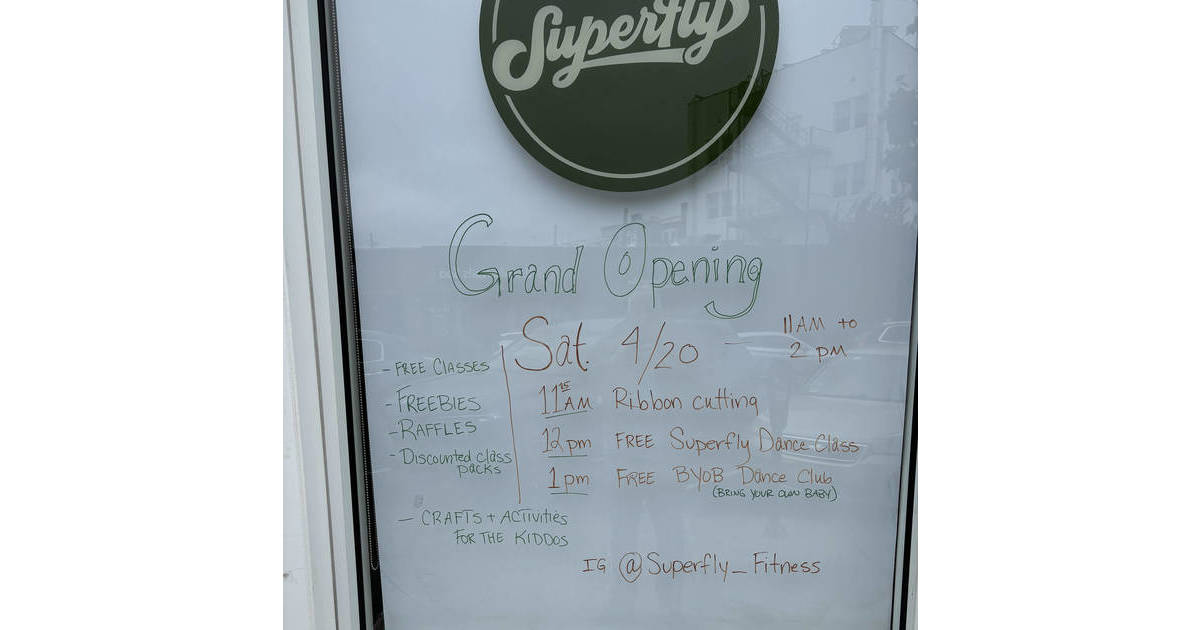 Superfly
Grand Opening
Sat. 4/20 — 11AM to
2 pm
- FREE CLASSES
- FREEBIES
- RAFFLES
- Discounted class
packs
— CRAFTS + ACTIVITIES
FOR THE KIDDOS
11AM Ribbon cutting
12pm FREE Superfly Dance Class
1pm FREE BYOB Dance Club
(BRING YOUR OWN BABY)
IG @Superfly_Fitness